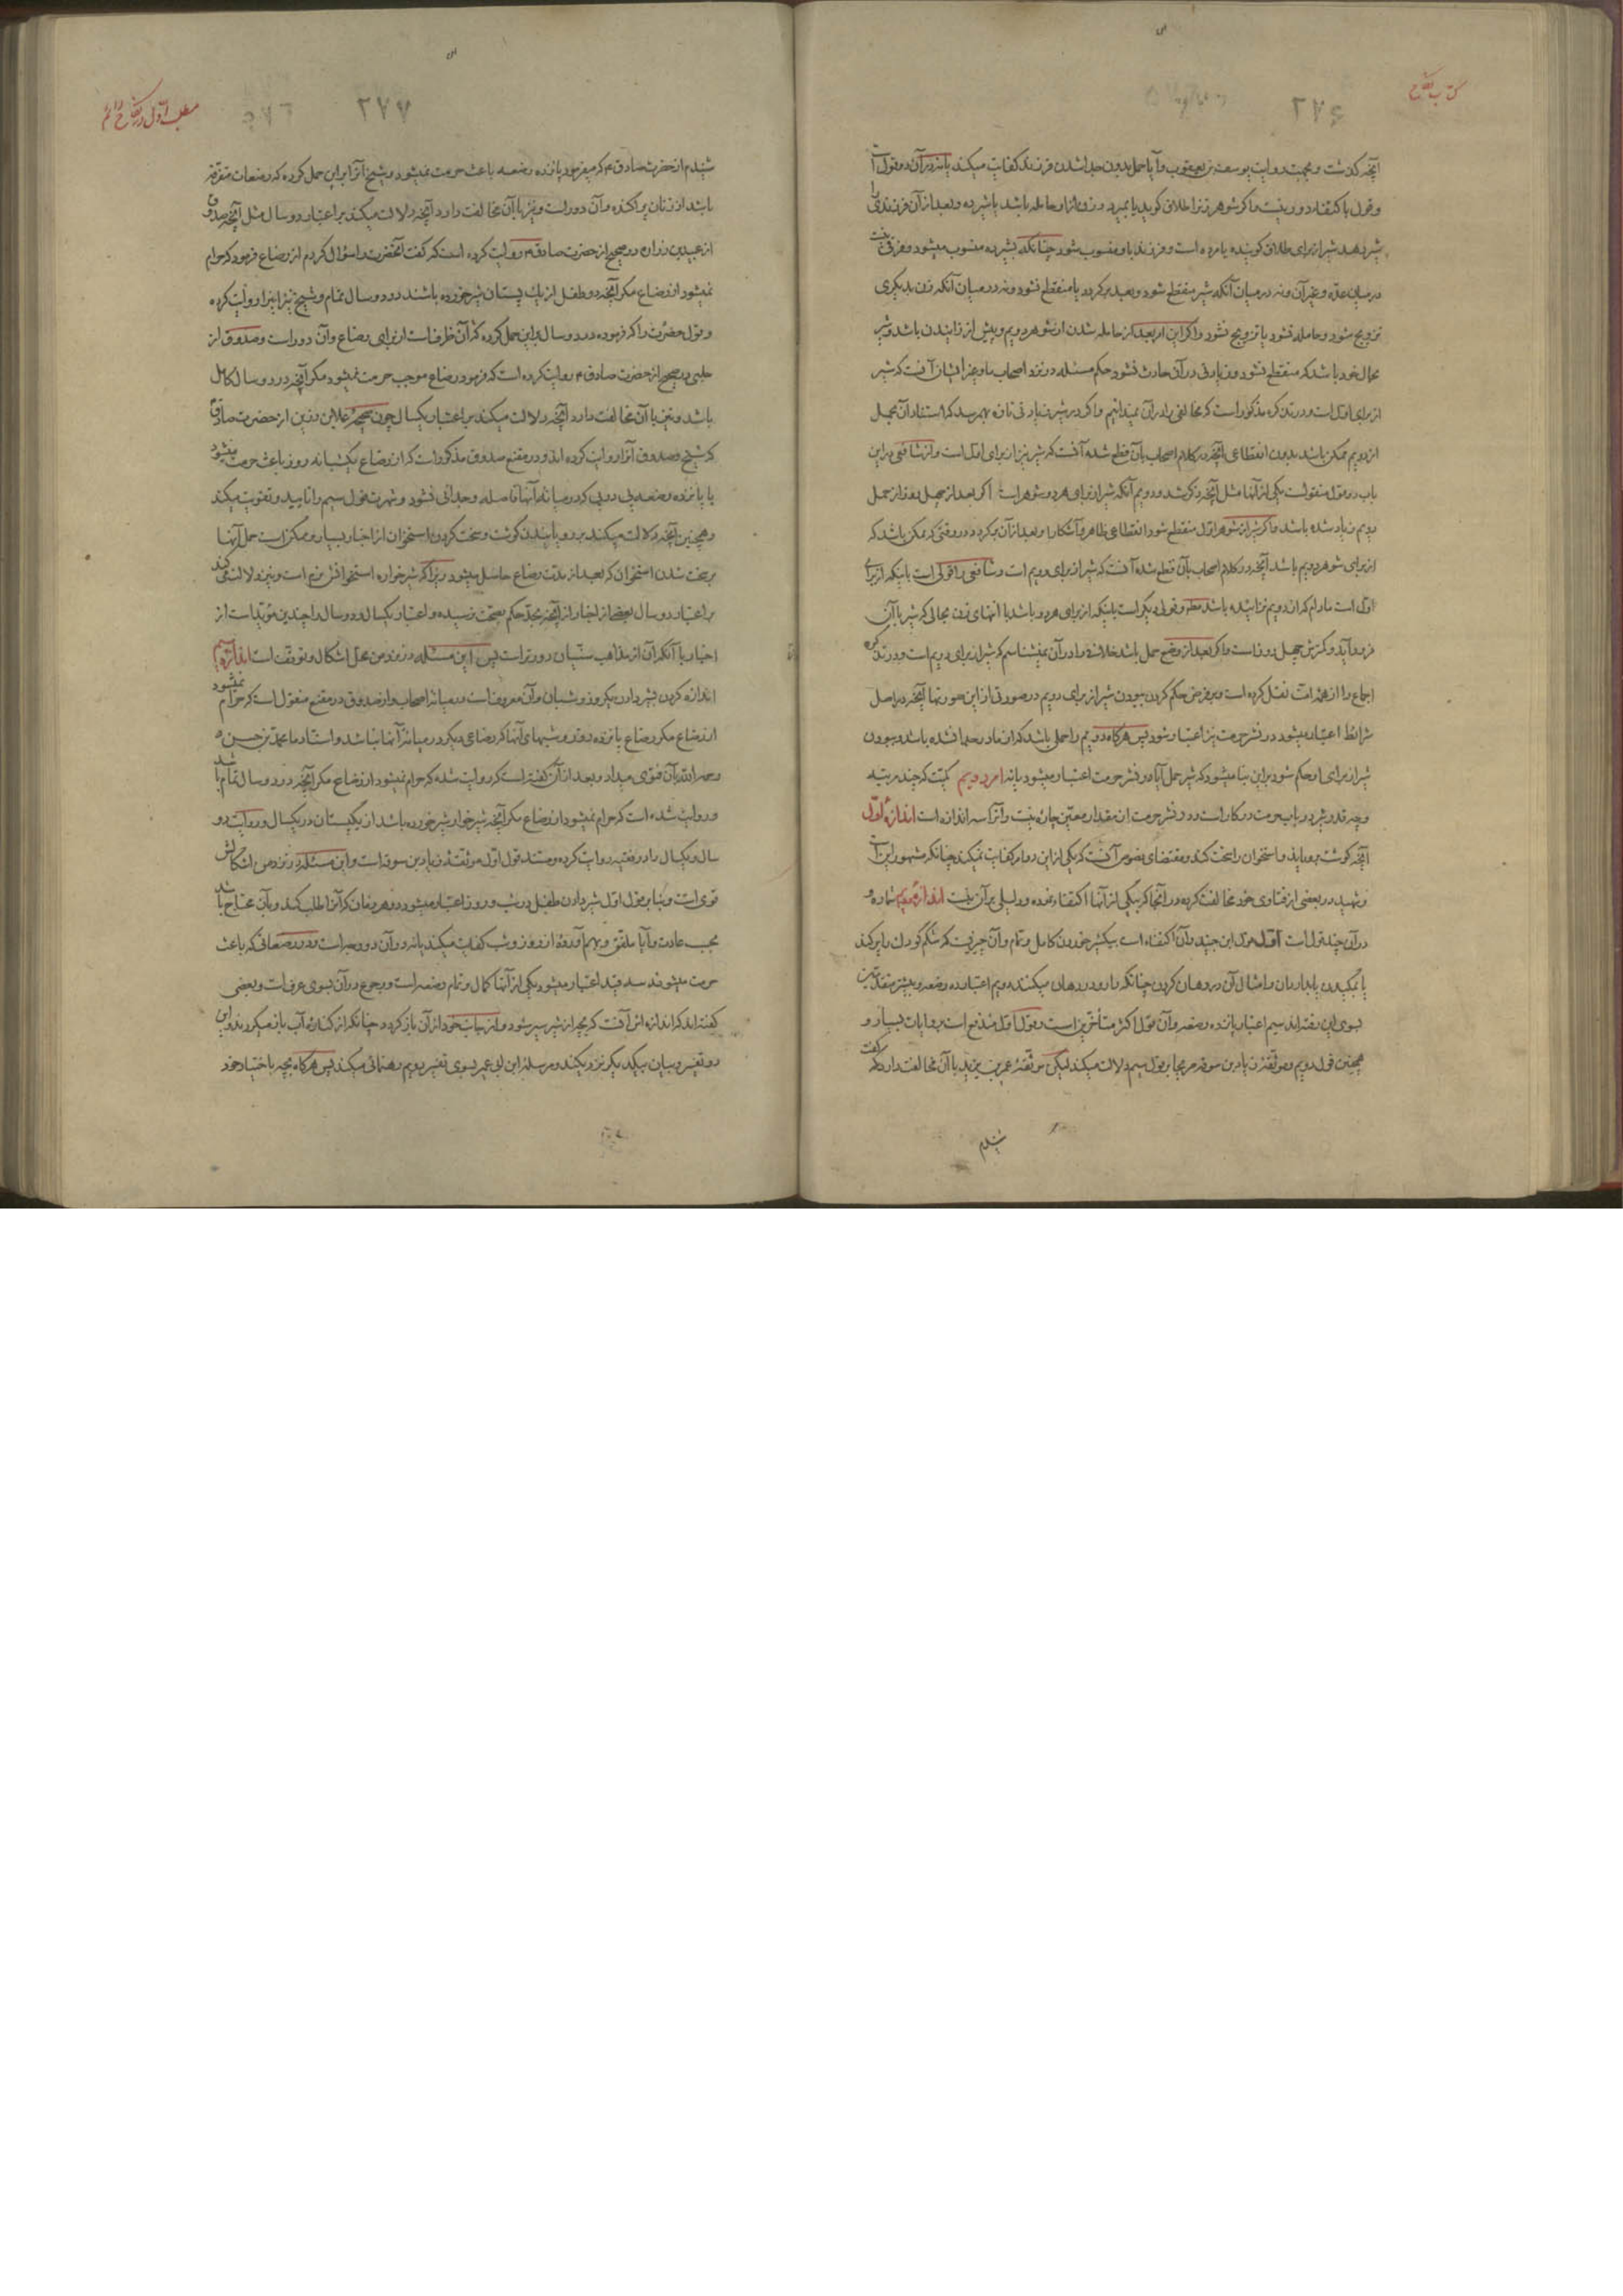 کتاب نکاح
۲۷۶
آنچه گذشت و بجهت روایت یوسف بن یعقوب و آیا حمل بدون جدا شدن فرزند کفایت میکند یا نه در آن دو قول است
و قول باکتفاء دور نیست و اگر شوهر زنرا طلاق گوید یا بمیرد و زن از او حامله باشد یا شیرده و بعد از آن فرزندی را
شیر دهد شیر از برای طلاق گوینده یا مرده است و فرزند باو منسوب شود چنانکه بشیرده منسوب میشود و فرقی نیست
در میان عدّه و غیر آن و نه در میان آنکه شیر منقطع شود و بعد برگردد یا منقطع نشود و نه در میان آنکه زن بدیگری
تزویج شود و حامله نشود یا تزویج نشود و اگر این امر بعد از حامله شدن از شوهر دویم و پیش از زاییدن باشد و شیر
بحال خود باشد که منقطع نشود و زیادتی در آن حادث نشود حکم مسئله در نزد اصحاب ما و غیر ایشان آنست که شیر
از برای اوّل است و در تذکره مذکور است که مخالفی را در آن نمیدانیم و اگر در شیر زیادتی تازه بهم رسد که استناد آن بحمل
از دویم ممکن باشد بدون انقطاعی آنچه در کلام اصحاب بآن قطع شده آنست که شیر نیز از برای اوّل است و از شافعی در این
باب دو قول منقولست یکی از آنها مثل آنچه ذکر شد و دویم آنکه شیر از برای هر دو شوهر است اگر بعد از چهل روز از حمل
دویم زیاد شده باشد و اگر شیر از شوهر اوّل منقطع شود انقطاعی ظاهر و آشکارا و بعد از آن برگردد در وقتی که ممکن باشد که
از برای شوهر دویم باشد آنچه در کلام اصحاب بآن قطع شده آنست که شیر از برای دویم است و شافعی را قولی است باینکه از برای
اوّل است مادام که از دویم نزاییده باشد و قولی دیگر است باینکه از برای هر دو باشد با انتهای زن بحالی که شیر با آن
فرود آید و کمترش چهل روز است و اگر بعد از وضع حمل باشد خلاف را در آن نمیشناسم که شیر از برای دویم است و در تذکره
اجماع را از همه امّت نقل کرده است و بر فرض حکم کردن ببودن شیر از برای دویم در صورتی از این صورتها آنچه در اصل
شرایط اعتبار میشود در نشر حرمت نیز اعتبار شود پس هرگاه دویم را حملی باشد که از مادر جدا نشده باشد و ببودن
شیر از برای او حکم شود بر این بنا میشود که شیر حمل آیا در نشر حرمت اعتبار میشود یا نه امر دویم کمیّت که چند مرتبه
و چه قدر شیر در باب حرمت در کار است و در نشر حرمت از مقدار معیّن چاره نیست و آنرا سه اندازه است اندازه اوّل
آنچه گوشت برویاند و استخوان را سخت کند و مقتضای نصوص آنست که یکی از این دو امر کفایت نمیکند چنانکه مشهور این است
و شهید در بعضی از فتاوی خود مخالفت کرده و در آنجا که بیکی از آنها اکتفاء نموده و دلیلی بر آن نیست اندازه دویم شماره و
در آن چند قول است اوّل قول ابن جنید و آن اکتفاء است بیکشیر خوردن کامل و تمام و آن چیزیست که شکم کودک را پر کند
یا بمکیدن یا بباریدن و امثال آن در دهان کردن چنانکه دارو در دهان میکنند دویم اعتبار ده رضعه و بیشتر متقدّمین
بسوی این رفته‌اند سیم اعتبار پانزده رضعه و آن قول اکثر متأخّرین است و قول اوّل مندفع است بروایات بسیار و
همچنین قول دویم و موثّقه زیاد بن سوقه صریحا بر قول سیم دلالت میکند لیکن موثّقه عمر بن یزید با آن مخالفت دارد که گفت
شنیدم
مطلب اوّل در نکاح دائم
۲۷۷
شنیدم از حضرت صادق ع که میفرمود پانزده رضعه باعث حرمت نمیشود و شیخ آنرا بر این حمل کرده که رضعات متفرّقه
باشد از زنان پراکنده و آن دور است و نیز با آن مخالفت دارد آنچه دلالت میکند بر اعتبار دو سال مثل آنچه صدوق
از عبید بن زراره در صحیح از حضرت صادق ع روایت کرده است که گفت آنحضرت را سؤال کردم از رضاع فرمود که حرام
نمیشود از رضاع مگر آنچه دو طفل از یک پستان شیر خورده باشند در دو سال تمام و شیخ نیز اینرا روایت کرده
و قول حضرت را که فرموده در دو سال بر این حمل کرده که آن ظرف است از برای رضاع و آن دور است و صدوق از
حلبی در صحیح از حضرت صادق ع روایت کرده است که فرمود رضاع موجب حرمت نمیشود مگر آنچه در دو سال کامل
باشد و نیز با آن مخالفت دارد آنچه دلالت میکند بر اعتبار یکسال چون صحیحه علاء بن رزین از حضرت صادق
که شیخ و صدوق آنرا روایت کرده‌اند و در مقنع صدوق مذکور است که از رضاع یکشبانه روز باعث حرمت میشود
یا پانزده رضعه پی در پی که در میانه آنها فاصله و جدائی نشود و شهرت قول سیم را تایید و تقویت میکند
و همچنین آنچه دلالت میکند بر رویانیدن گوشت و سخت کردن استخوان از اخبار بسیار و ممکن است حمل آنها
بر سخت شدن استخوان که بعد از مدّت رضاع حاصل میشود زیرا که شیرخواره استخوانش نرم است و نیز دلالت می‌کند
بر اعتبار دو سال بعضی از اخبار از آنچه بحدّ حکم بصحّت نرسیده و اعتبار یکسال و دو سال را چندین مؤیّد است از
اخبار با آنکه آن از مذاهب سنّیان دورتر است پس این مسئله در نزد من محلّ اشکال و توقّف است اندازه سیم
اندازه کردن بشیر دادن یکروز و شبان و آن معروف است در میانه اصحاب و از صدوق در مقنع منقول است که حرام نمیشود
از رضاع مگر رضاع پانزده روز و شبهای آنها که رضاعی دیگر در میانه آنها نباشد و استاد ما محمّد بن حسن ره
رحمه الله بآن فتوی میداد و بعد از آن گفته است که روایت شده که حرام نمیشود از رضاع مگر آنچه در دو سال تمام باشد
و روایت شده است که حرام نمیشود از رضاع مگر آنچه شیرخوار شیر خورده باشد از یکپستان در یکسال و روایت دو
سال و یکسال را در فقیه روایت کرده و مستند قول اوّل موثّقه زیاد بن سوقه است و این مسئله در نزد من اشکالش
قوی است و بنا بر قول اوّل شیر دادن طفل در شب و روز اعتبار میشود در هر زمان که آنرا طلب کند و بآن محتاج باشد
بحسب عادت و آیا ملفّق و بهم آورده از روز و شب کفایت میکند یا نه در آن دو وجه است و در رضعاتی که باعث
حرمت میشوند سه قید اعتبار میشود یکی از آنها کمال و تمام رضعه است و رجوع در آن بسوی عرف است و بعضی
گفته‌اند که اندازه اش آنست که بچه از شیر سیر شود و از جانب خود از آن باز گردد چنانکه از کناره آب باز میگردد و این
دو تفسیر و بیان بیکدیگر نزدیکند و مرسله ابن ابی عمیر بسوی تفسیر دویم رهنمائی میکند پس هرگاه بچه باختیار خود